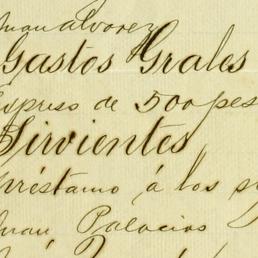 Juan Alvarez
Gastos Grales
Espreso de 500 pes
Sirvientes
préstamo á los s
Juan Palacios